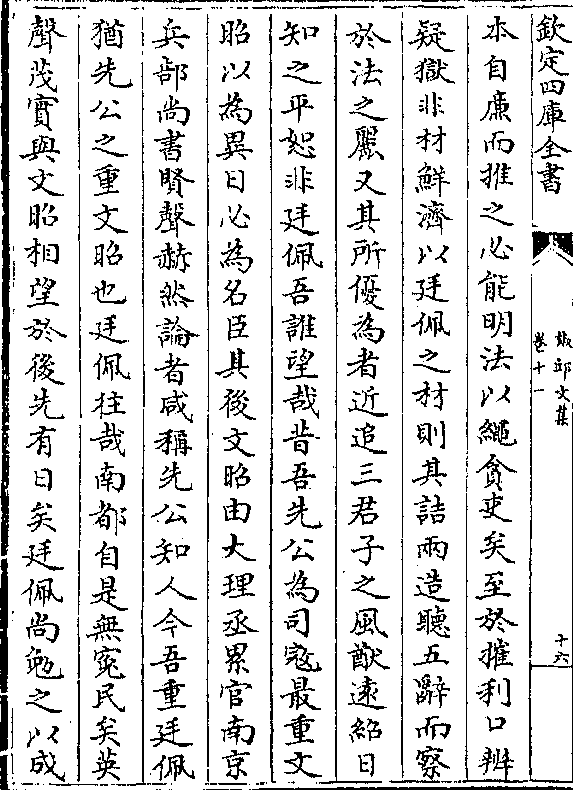 欽定四庫全書
皷邱文集
卷十一
十六
本自廉而推之必能明法以繩貪吏矣至於摧利口辨
疑獄非材鮮濟以廷佩之材則其詰兩造聽五辭而察
於法之麗又其所優為者近追三君子之風猷遠紹日
知之平恕非廷佩吾誰望哉昔吾先公為司寇最重文
昭以為異日必為名臣其後文昭由大理丞累官南京
兵部尚書賢聲赫然論者咸稱先公知人今吾重廷佩
猶先公之重文昭也廷佩往哉南都自是無寃民矣英
聲茂實與文昭相望於後先有日矣廷佩尚勉之以成